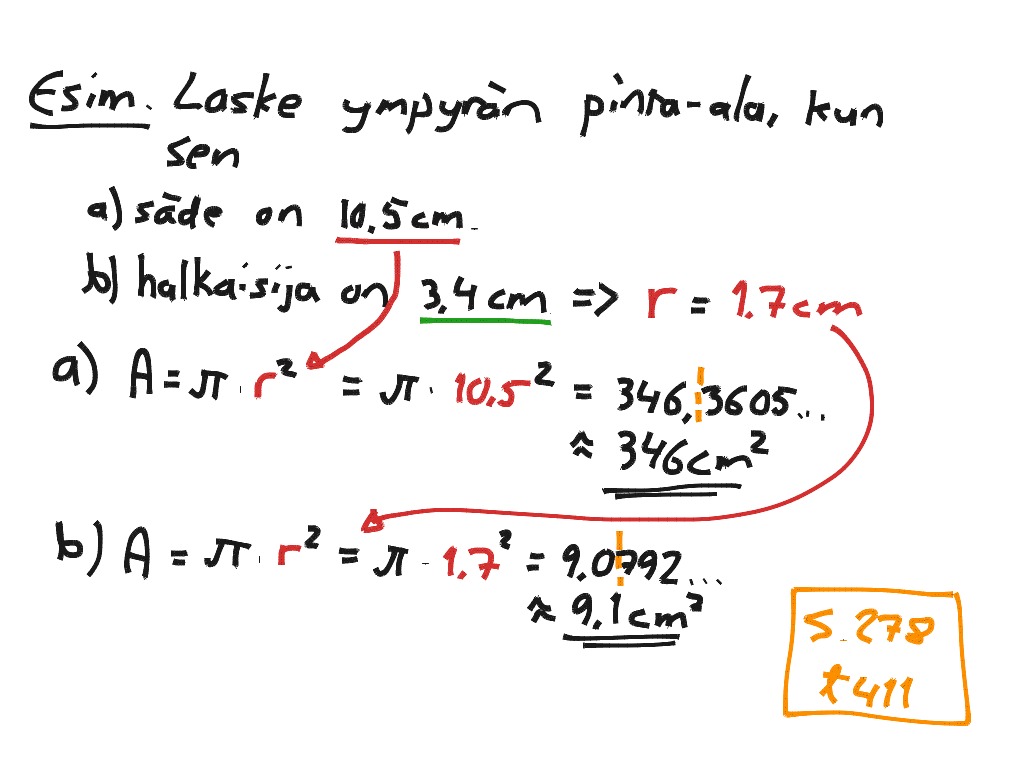 Esim. Laske ympyrän pinta-ala, kun
sen
a) säde on 10,5 cm.
b) halkaisija on 3,4 cm => r = 1,7 cm
a) A = π · r² = π · 10,5² = 346,3605...
≈ 346 cm²
b) A = π · r² = π · 1,7² = 9,0792...
≈ 9,1 cm²
S. 278
t 411